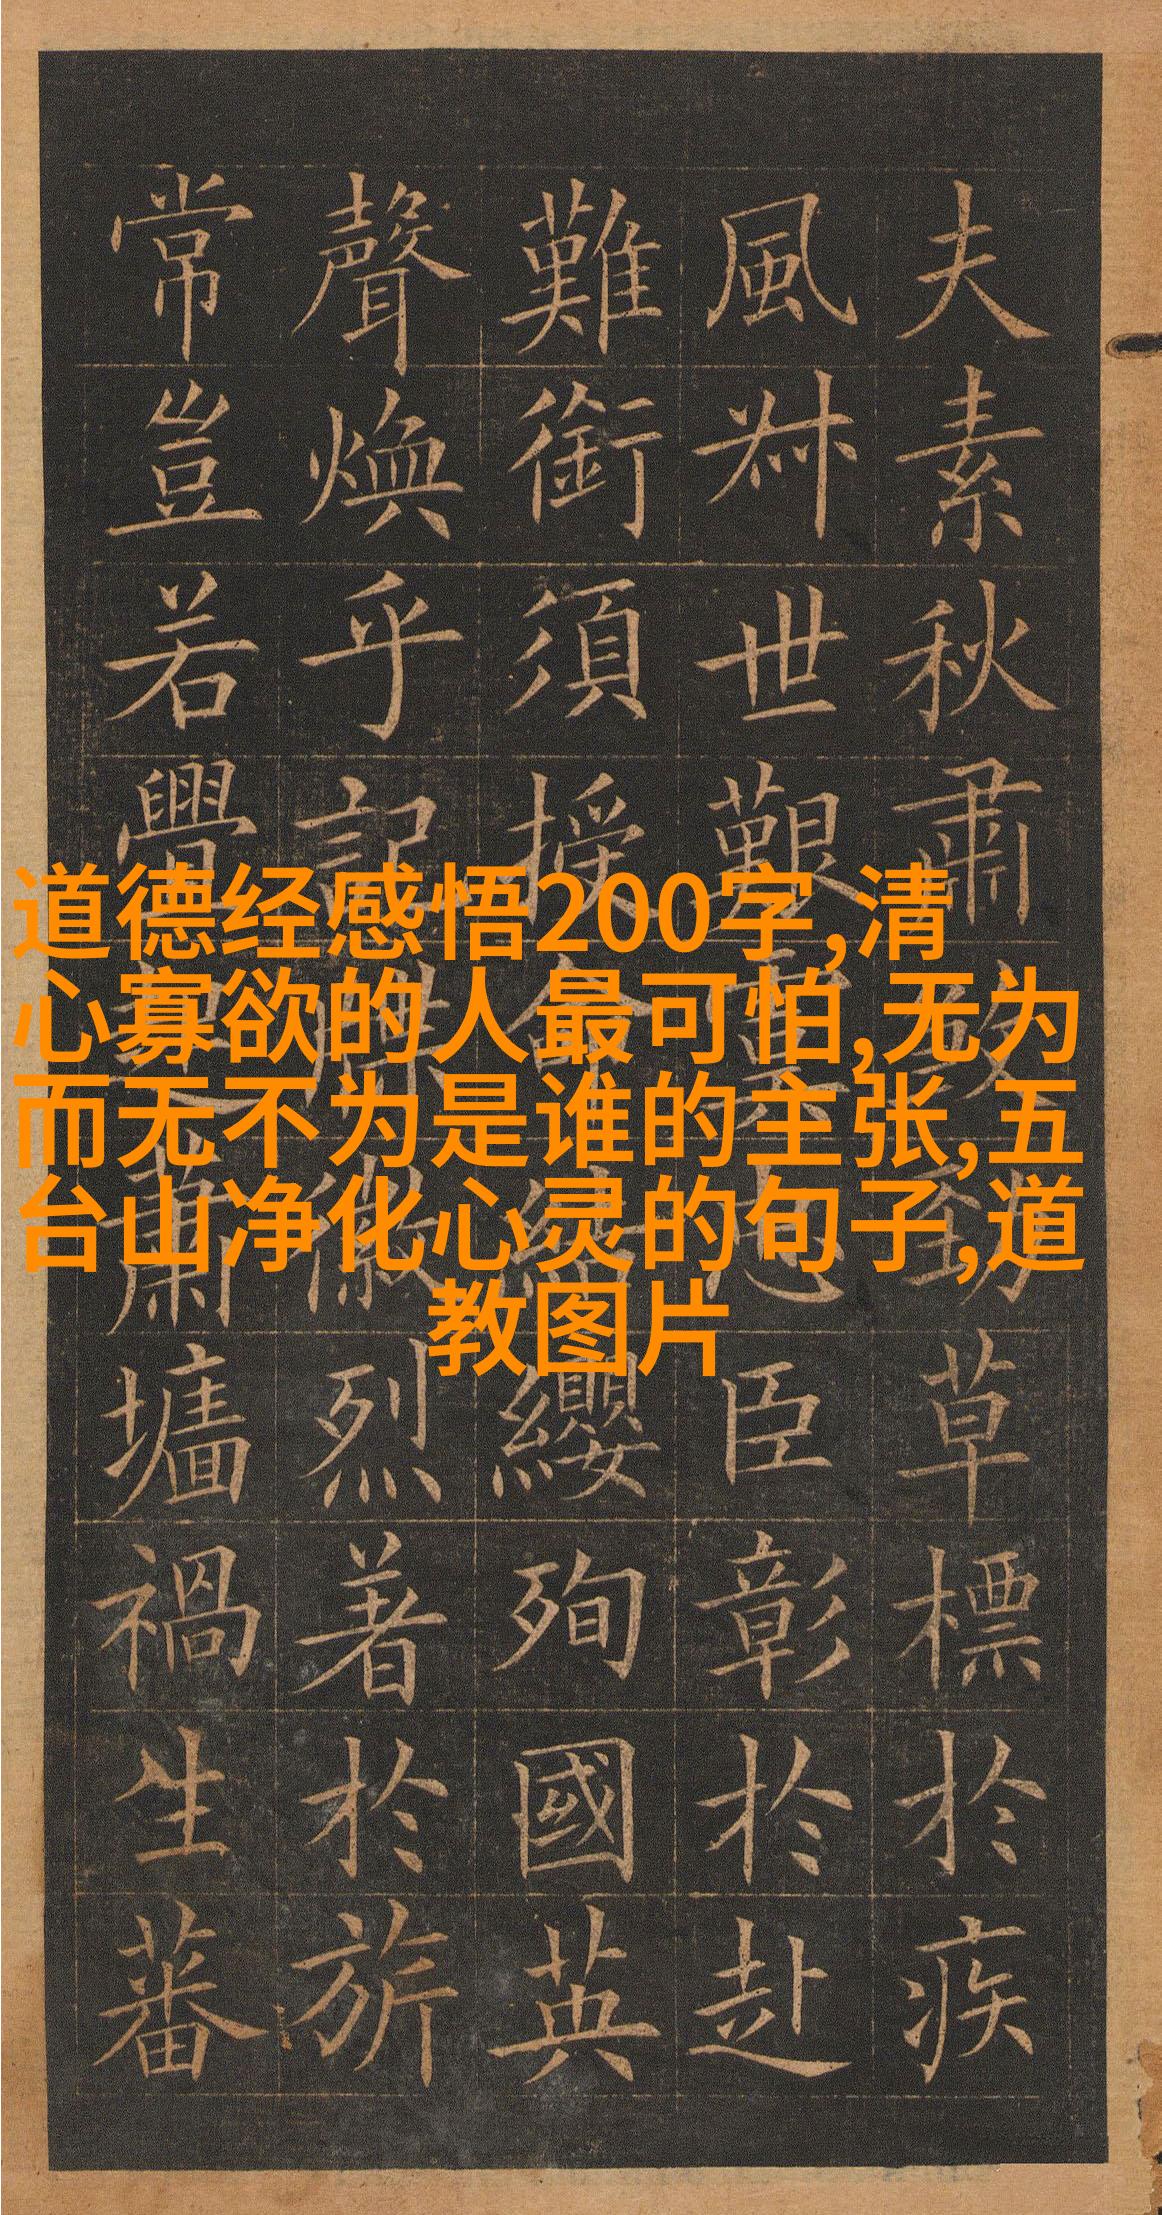 夫素秋肅煞勁草標於疾
風叔世艱虞忠臣彰於赴
難銜須授命結纓殉國英
聲煥乎記牒徽烈著於旂
常豈若釁起蕭墻禍生蕃
道德经感悟200字,清
心寡欲的人最可怕,无为
而无不为是谁的主张,五
台山净化心灵的句子,道
教图片